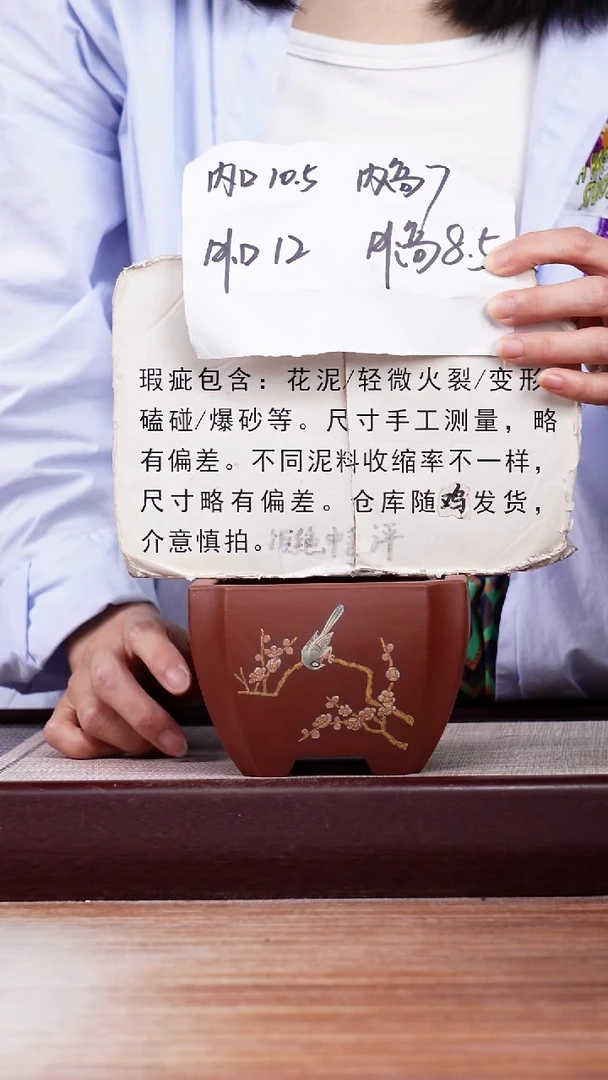 内口10.5 内高7
外口12 外高8.5
瑕疵包含：花泥/轻微火裂/变形
磕碰/爆砂等。尺寸手工测量，略
有偏差。不同泥料收缩率不一样，
尺寸略有偏差。仓库随鸡发货，
介意慎拍。拒绝中差评